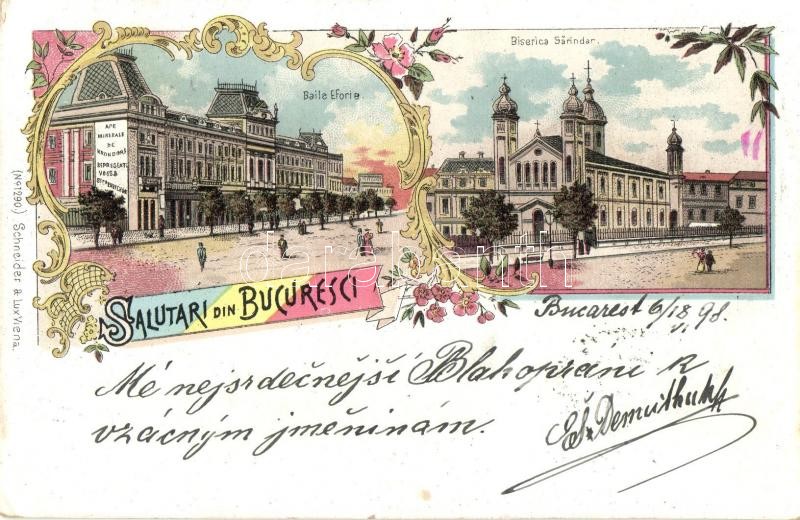 Baile Eforie
Biserica Sărindar.
APE
MINERALE
DE
(No 1290) Schneider & Lux Viena.
SALUTARI DIN BUCURESCI
darabanth
Bucarest 6/18 98.
Mé nejsrdečnější Blahopřání k
vzácným jmeninám.